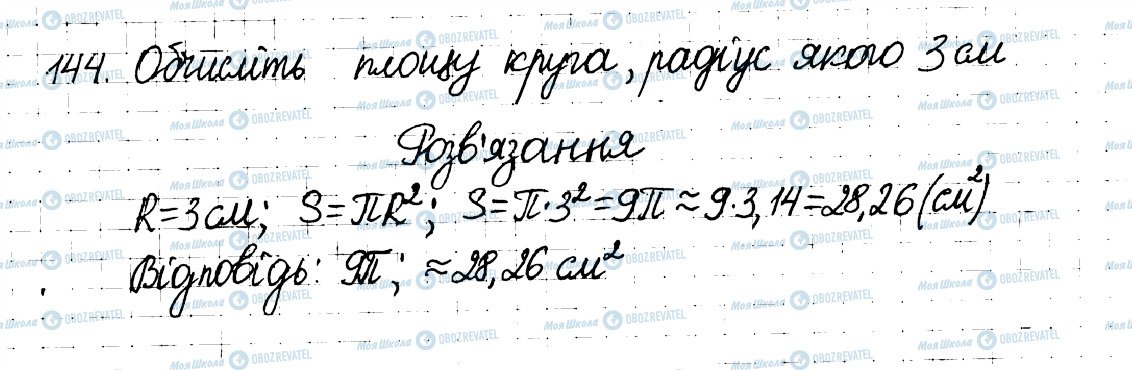 144. Обчисліть площу круга, радіус якого 3 см
Розв'язання
R=3 см; S=πR²; S=π·3²=9π≈9·3,14=28,26 (см²)
Відповідь: 9π; ≈28,26 см²